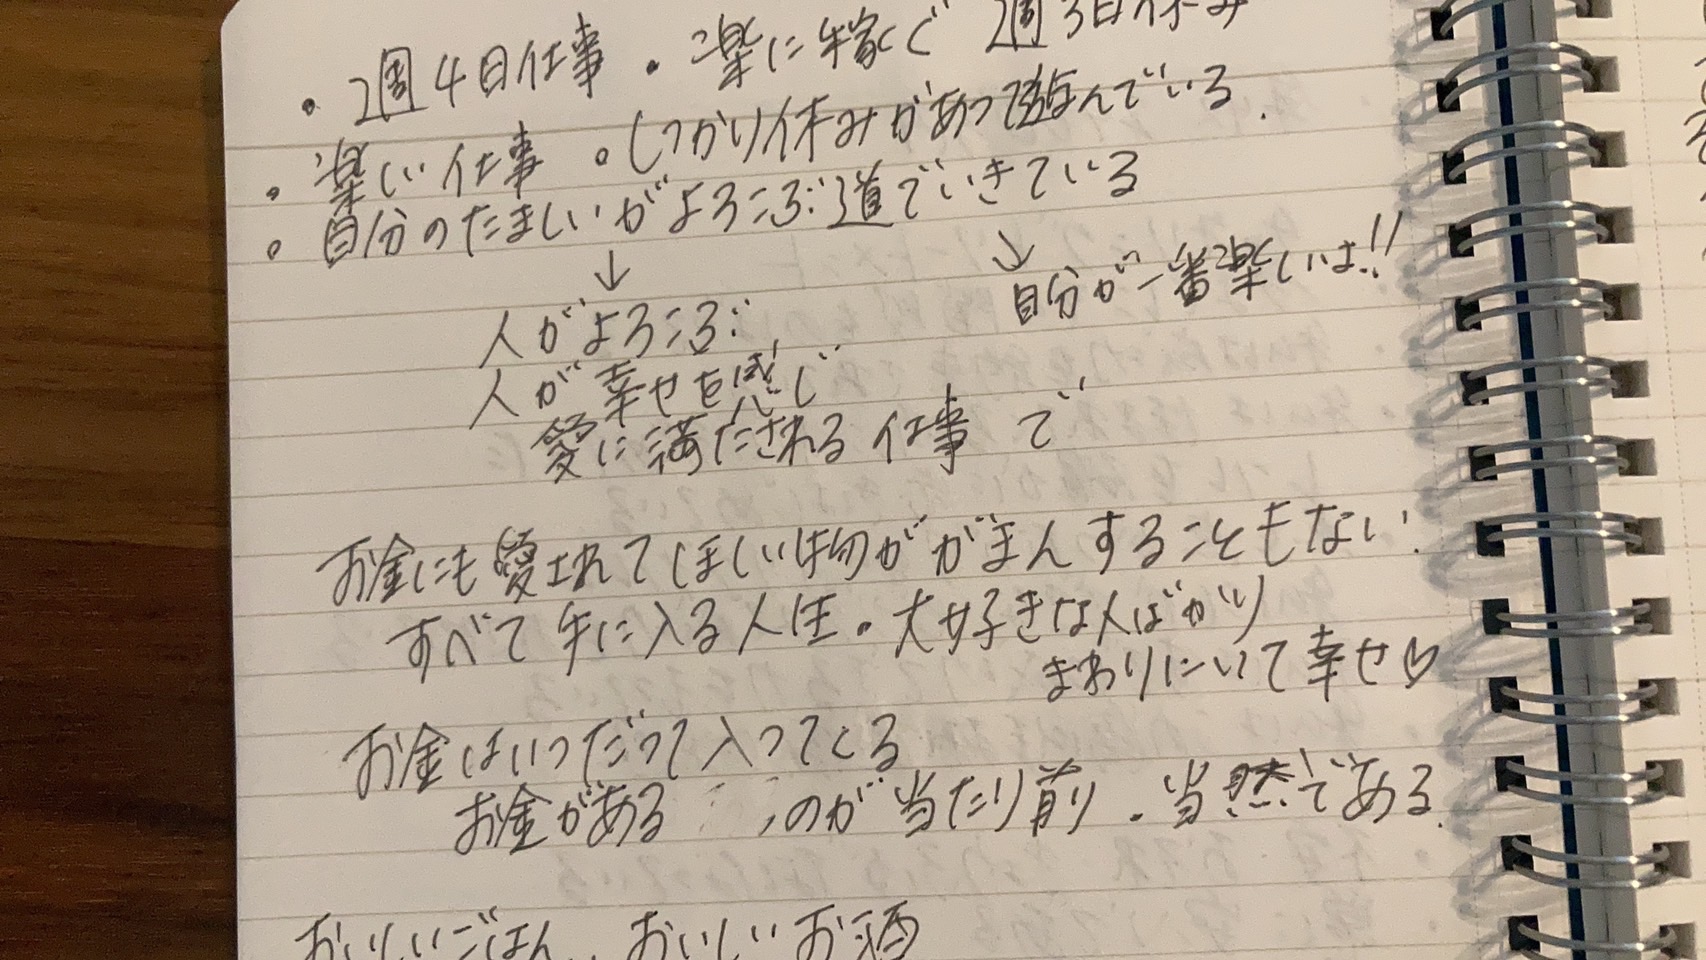 ・週4日仕事 ・楽に稼ぐ 週3日休み
・楽しい仕事 ・しっかり休みがあって遊んでいる.
・自分のたましいがよろこぶ道でいきている
↓ ↓
自分が一番楽しいよ!!
人がよろこぶ
人が幸せを感じ
愛に満たされる仕事で
お金にも愛されてほしい物ががまんすることもない.
すべて手に入る人生。大好きな人ばかり
まわりにいて幸せ♡
お金はいつだって入ってくる
お金がある のが当たり前.当然である.
おいしいごはん、おいしいお酒